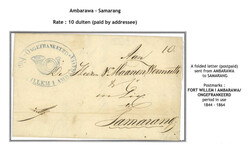 Ambarawa - Samarang
Rate : 10 duiten (paid by addressee)
ONGEFRANKEERD
WILLEM I
Aan
10
Den Heer
Samarang
A folded letter (postpaid)
sent from AMBARAWA
to SAMARANG
Postmarks :
FORT WILLEM I AMBARAWA/
ONGEFRANKEERD
period in use
1844 - 1864